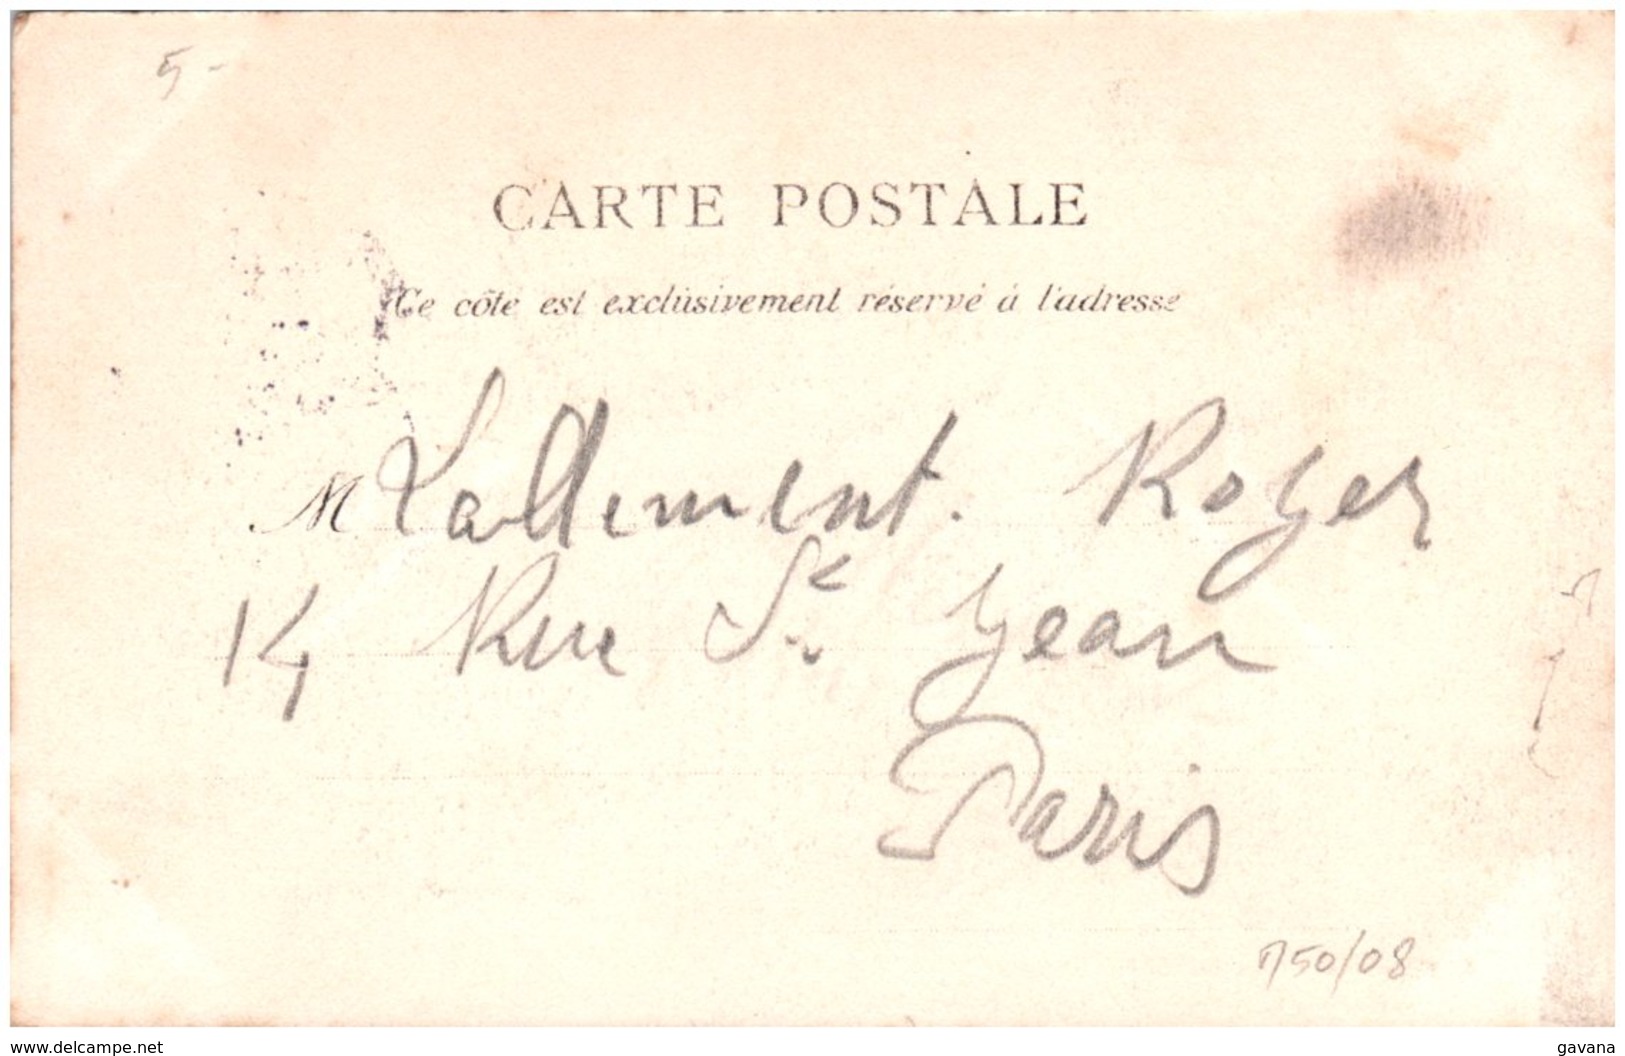 5-
CARTE POSTALE
Ce côté est exclusivement réservé à l'adresse
M Lallement. Roger
14 Rue St Jean
Paris
750/08
www.delcampe.net
gavana